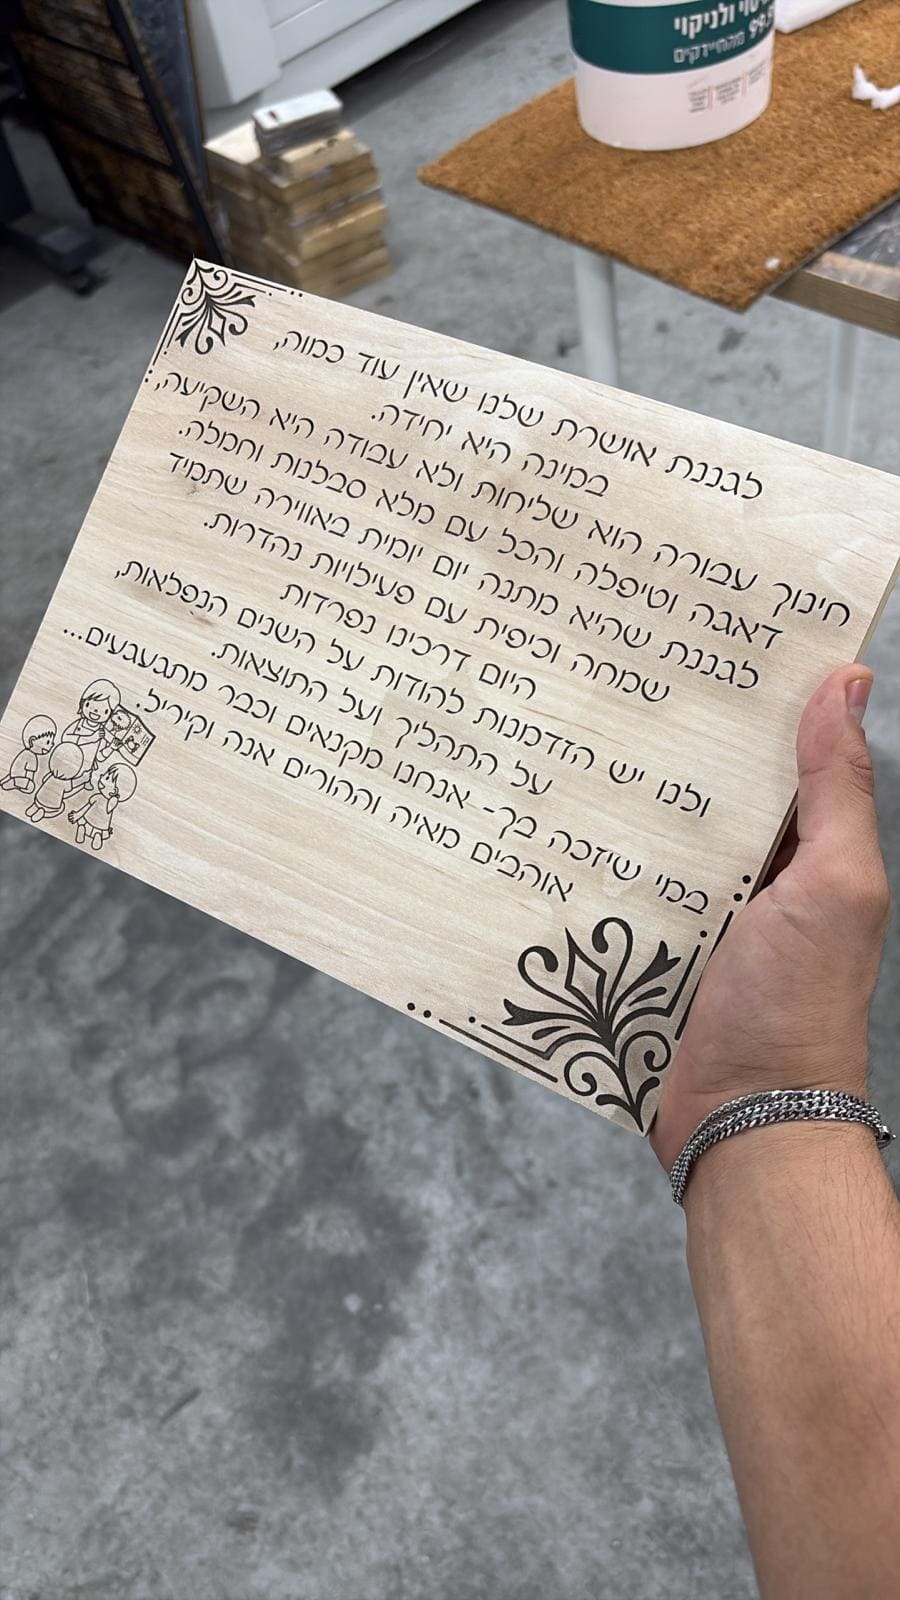 לניקוי
99.9%
לגננת אושרת שלנו שאין עוד כמוה,
במינה היא יחידה.
חינוך עבורה הוא שליחות ולא עבודה היא השקיעה,
דאגה וטיפלה והכל עם מלא סבלנות וחמלה.
לגננת שהיא מתנה יום יומית באווירה שתמיד
שמחה וכיפית עם פעילויות נהדרות.
היום דרכינו נפרדות
ולנו יש הזדמנות להודות על השנים הנפלאות,
על התהליך ועל התוצאות.
במי שיזכה בך- אנחנו מקנאים וכבר מתגעגעים...
אוהבים מאיה וההורים אנה וקיריל.